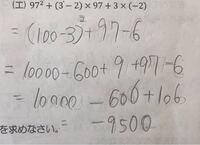 (エ) 97² + (3 - 2) × 97 + 3 × (-2)
= (100-3)² + 97 - 6
= 10000 - 600 + 9 + 97 - 6
= 10000 - 600 + 106
を求めなさい。 = -9500